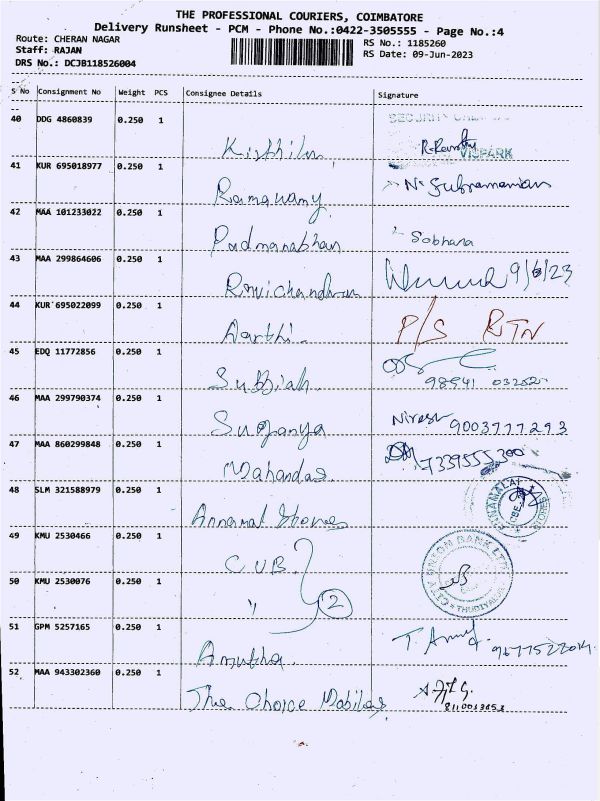 THE PROFESSIONAL COURIERS, COIMBATORE
Delivery Runsheet - PCM - Phone No.:0422-3505555 - Page No.:4
Route: CHERAN NAGAR
RS No.: 1185260
Staff: RAJAN
RS Date: 09-Jun-2023
DRS No.: DCJB118526004
S No Consignment No Weight PCS Consignee Details Signature
40 DDG 4860839 0.250 1
VISPARK
41 KUR 695018977 0.250 1 N. Subramanian
42 MAA 101233022 0.250 1 Padmanabhan Sobhana
43 MAA 299864606 0.250 1 Ravichandran 9/6/23
44 KUR 695022099 0.250 1 Aarthi. P/S RTN
45 EDQ 11772856 0.250 1 Subbiah.
46 MAA 299790374 0.250 1 Suganya 9003777293
47 MAA 860299848 0.250 1 7339555300
48 SLM 321588979 0.250 1 Annamal Stores
49 KMU 2530466 0.250 1 C.U.B. CITY UNION BANK LTD THUDIYALUR
50 KMU 2530076 0.250 1 " 2
51 GPM 5257165 0.250 1 Amutha.
52 MAA 943302360 0.250 1 The Choice Mobiles